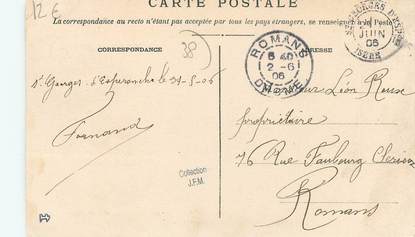 12 €
CARTE POSTALE
La correspondance au recto n'étant pas acceptée par tous les pays étrangers, se renseigner à la Poste
CORRESPONDANCE
38
ADRESSE
ROMANS
5 40
2-6
06
DROME
JUIN
06
ISÈRE
St Georges d'Espéranche le 31-5-06
Fernand
Monsieur Léon
propriétaire
76 Rue Faubourg Clérieux
Romans
Collection
J.F.M.